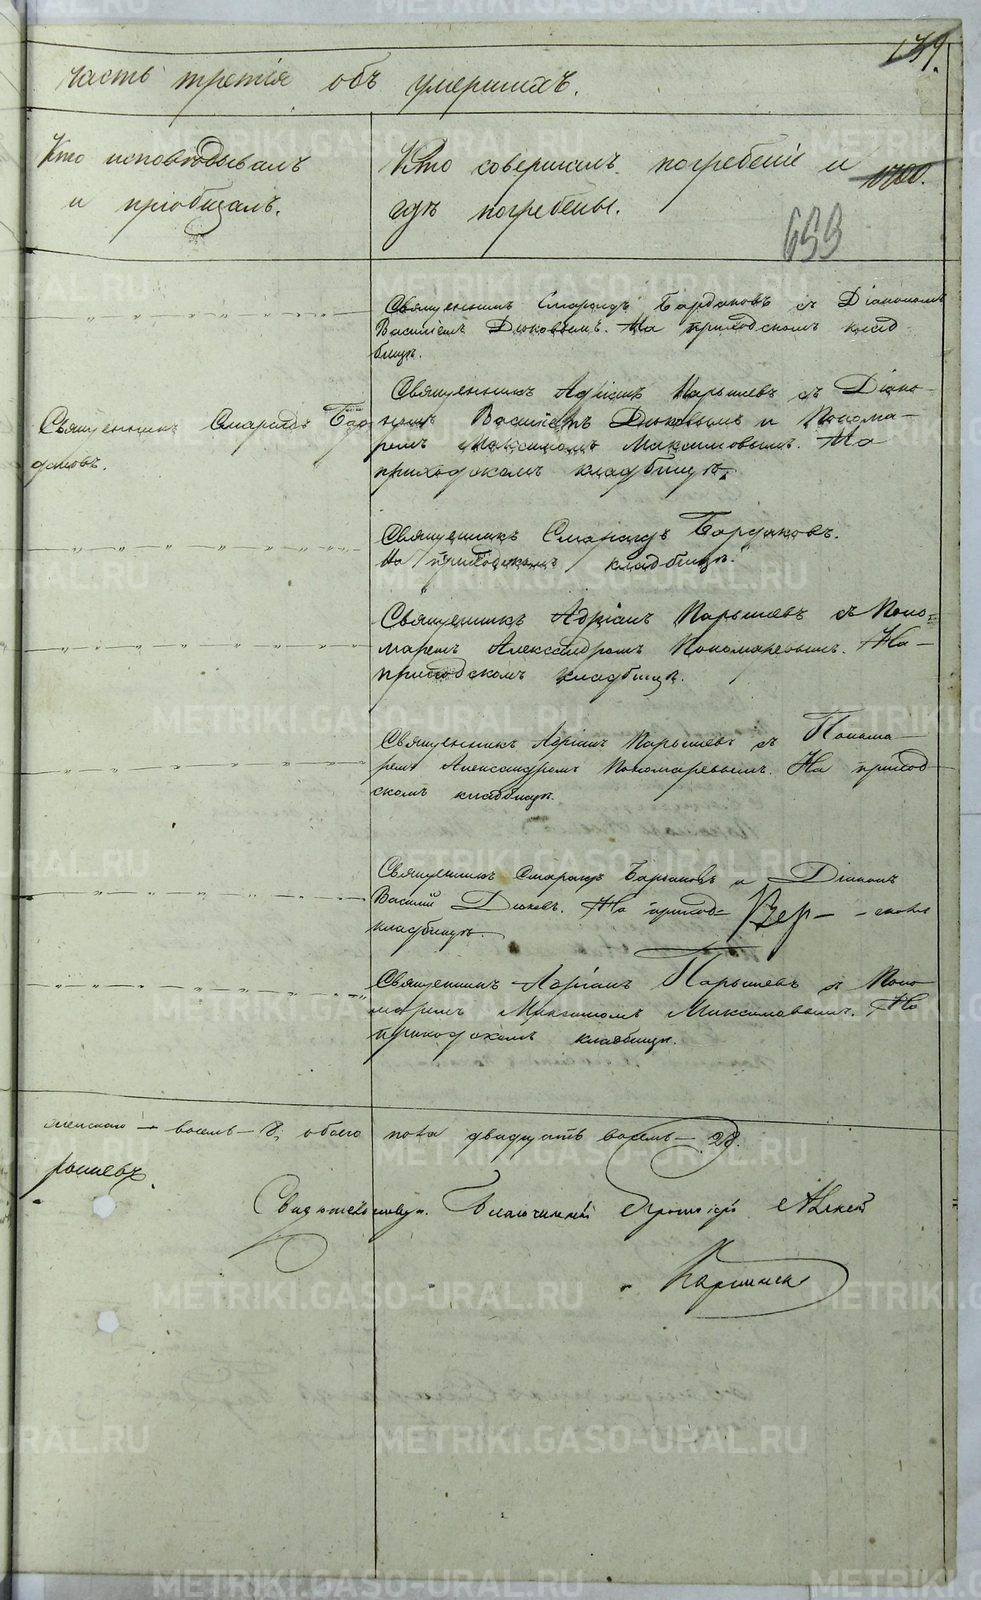 149.
часть третія объ умершихъ.
Кто исповѣдывалъ
и пріобщалъ.
Кто совершалъ погребеніе и
гдѣ погребены.
1700.
699
Священникъ Смарагдъ Бардаковъ съ Діакономъ
Василіемъ Дюковымъ. На приходскомъ клад
бищѣ.
Священникъ Смарагдъ Бар
даковъ.
Священникъ Адріанъ Парышевъ съ Діако-
номъ Василіемъ Дюковымъ и Понома-
ремъ Максимомъ Максимовымъ. На
приходскомъ кладбищѣ.
Священникъ Смарагдъ Бардаковъ.
На приходскомъ кладбищѣ.
Священникъ Адріанъ Парышевъ съ Поно-
маремъ Александромъ Пономаревымъ. На-
приходскомъ кладбищѣ.
Священникъ Адріанъ Парышевъ съ Понома-
ремъ Александромъ Пономаревымъ. На приход-
скомъ кладбищѣ.
Священникъ Смарагдъ Бардаковъ и Діаконъ
Василій Дюковъ. На приход= Вер- - скомъ
кладбищѣ.
Священникъ Адріанъ Парышевъ съ Поно
маремъ Максимомъ Максимовымъ. На
приходскомъ кладбищѣ.
женскаго - восемь - 8, обоего пола двадцать восемь - 28.
рышевъ.
Свидѣтельствовалъ. Благочинный Протоіерей
METRIKI.GASO-URAL.RU